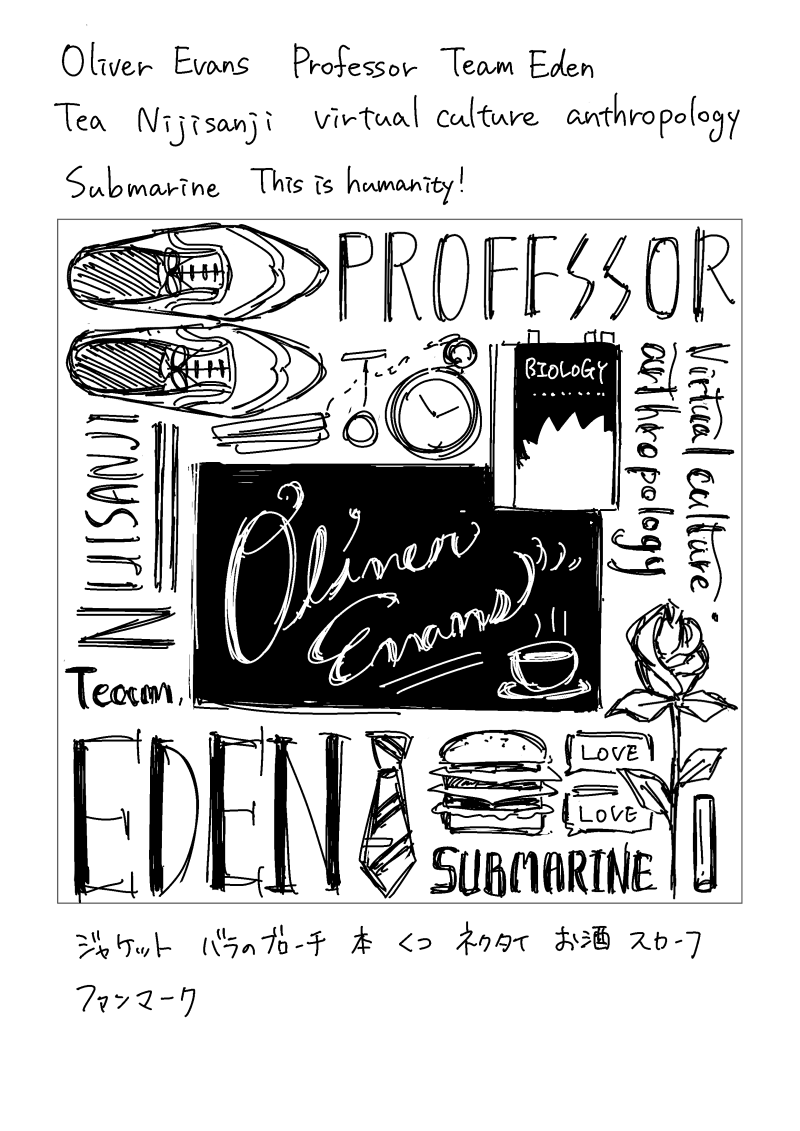 Oliver Evans Professor Team Eden
Tea Nijisanji virtual culture anthropology
Submarine This is humanity!
PROFESSOR
BIOLOGY
Virtual culture
anthropology
NIJISANJI
Oliver
Evans
Team
EDEN
LOVE
LOVE
SUBMARINE
ジャケット バラのブローチ 本 くつ ネクタイ お酒 スカーフ
ファンマーク